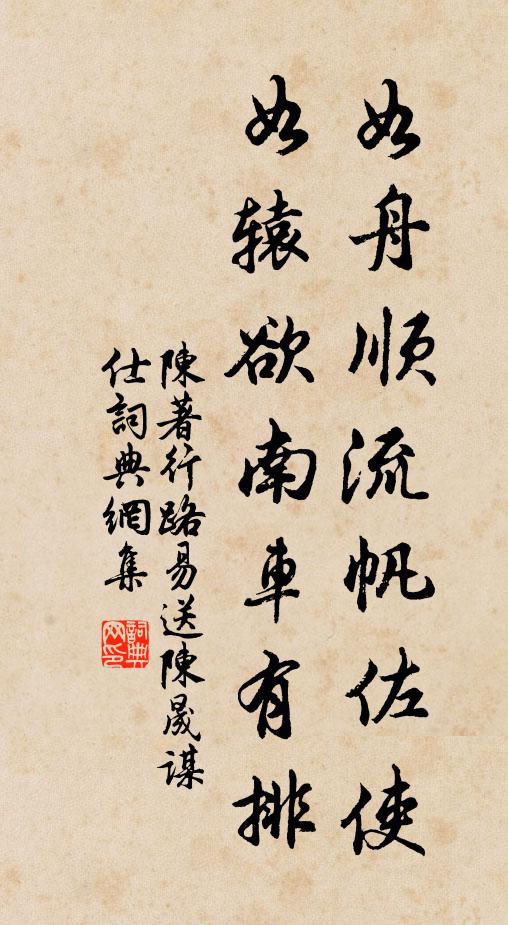 如舟順流帆佐使
如轅欲南車有排
陳著行路易送陳晟謀
仕詞典網集
詞典網印